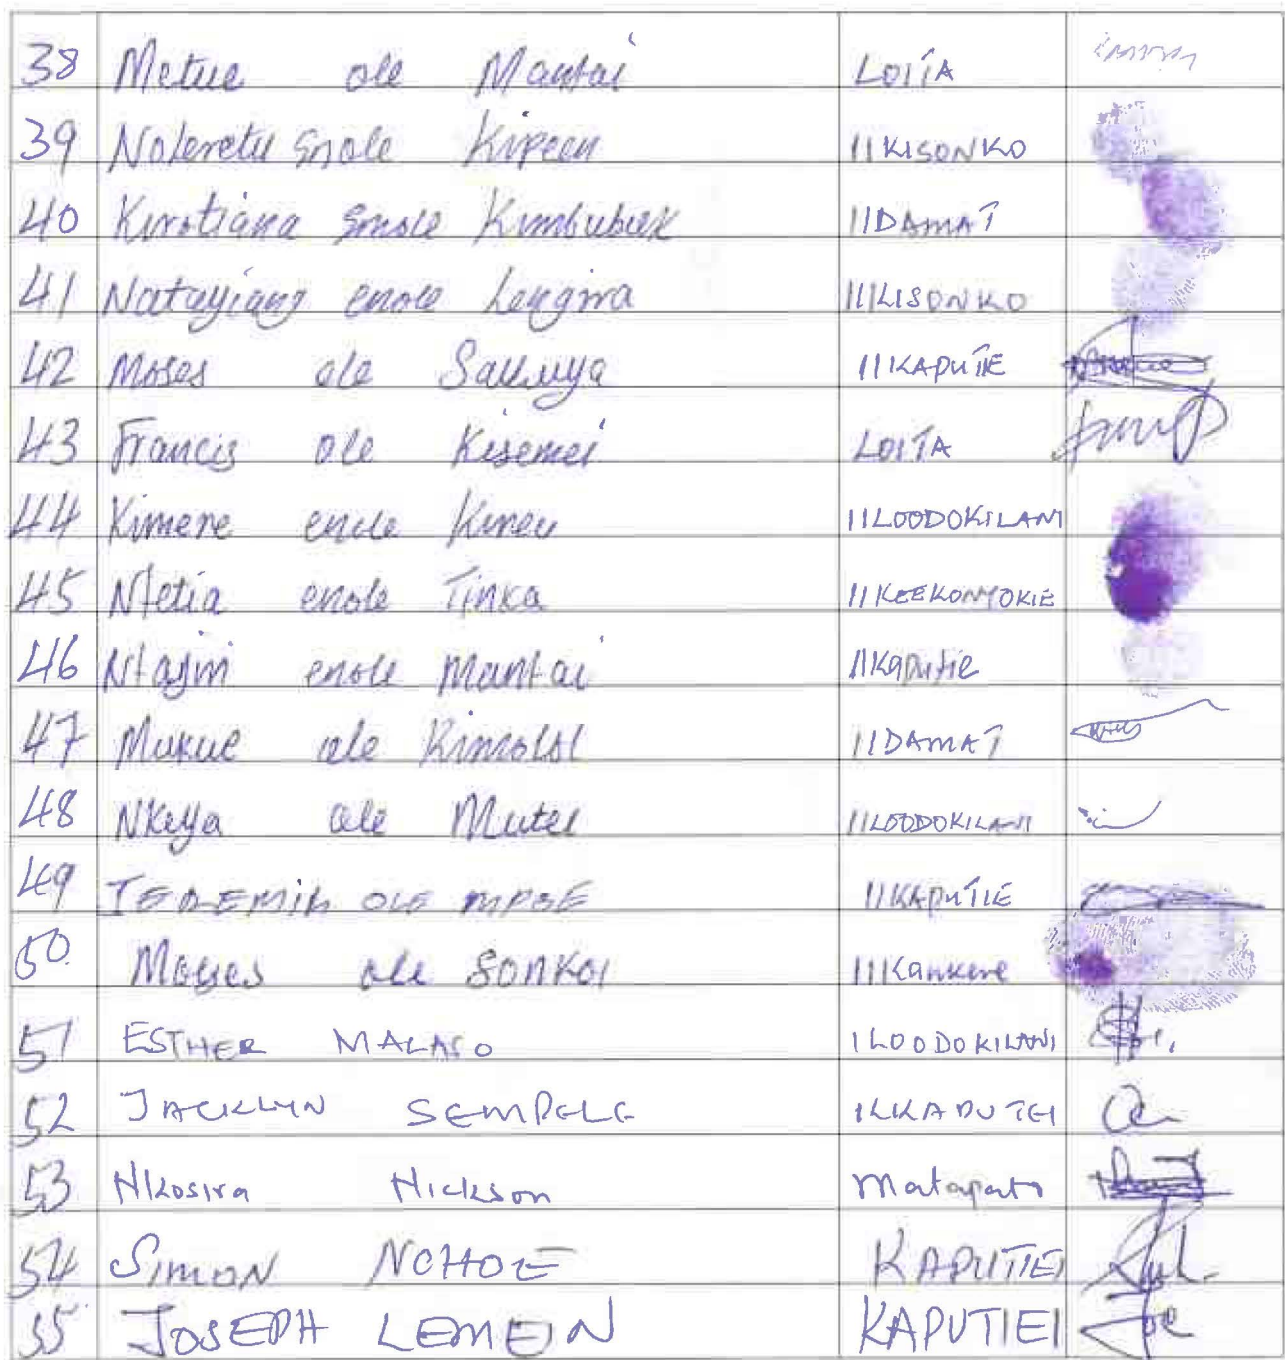 38 Metue ole Mantai LOITA
39 Noleretu Enole Kipeen IIKISONKO
40 Kirotiana Enole Kimbubuek IIDAMAT
41 Natayiang enole Lengina IIILISONKO
42 Moses ole Sakuuya IIKAPUTIE
43 Francis ole Kisemei LOITA
44 Kimere enole Kireu IILOODOKILANI
45 Ntetia enole Tinka IIKEEKONYOKIE
46 Ntajiri enole Mantai IIKaputie
47 Mukue ole Kimolol IIDAMAT
48 Nkeya ole Mutei IILOODOKILANI
49 JEREMIH OLE IIKAPUTIE
50 Moses ole SONKOI IIIKankere
51 ESTHER MALASO ILOODOKILANI
52 JACKLYN SEMPELE ILKAPUTEI
53 Nkosira Hickson Matapato
54 SIMON NCHOE KAPUTIEI
55 JOSEPH LEMEIN KAPUTIEI
Joe